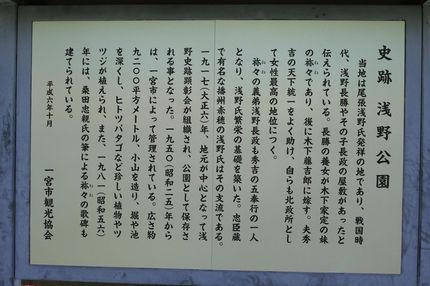 史跡 浅野公園
当地は尾張浅野氏発祥の地であり、戦国時
代、浅野長勝やその子長政の屋敷があったと
伝えられている。長勝の養女が木下家定の妹
の祢々であり、後に木下藤吉郎に嫁す。夫秀
吉の天下統一をよく助け、自らも北政所とし
て女性最高の地位につく。
祢々の義弟浅野長政も秀吉の五奉行の一人
となり、浅野氏繁栄の基礎を築いた。忠臣蔵
で有名な播州赤穂の浅野氏はその支流である。
一九一七(大正六)年、地元が中心となって浅
野史跡顕彰会が組織され、公園として保存さ
れる事となった。一九五〇(昭和二五)年から
は、一宮市によって管理されている。広さ約
九二〇〇平方メートル、小山を造り、堀や池
を深くし、ヒトツバタゴなど珍しい植物やツ
ツジが植えられ、また、一九八一(昭和五六)
年には、桑田忠親氏の筆による祢々の歌碑も
建てられている。
平成六年十月
一宮市観光協会